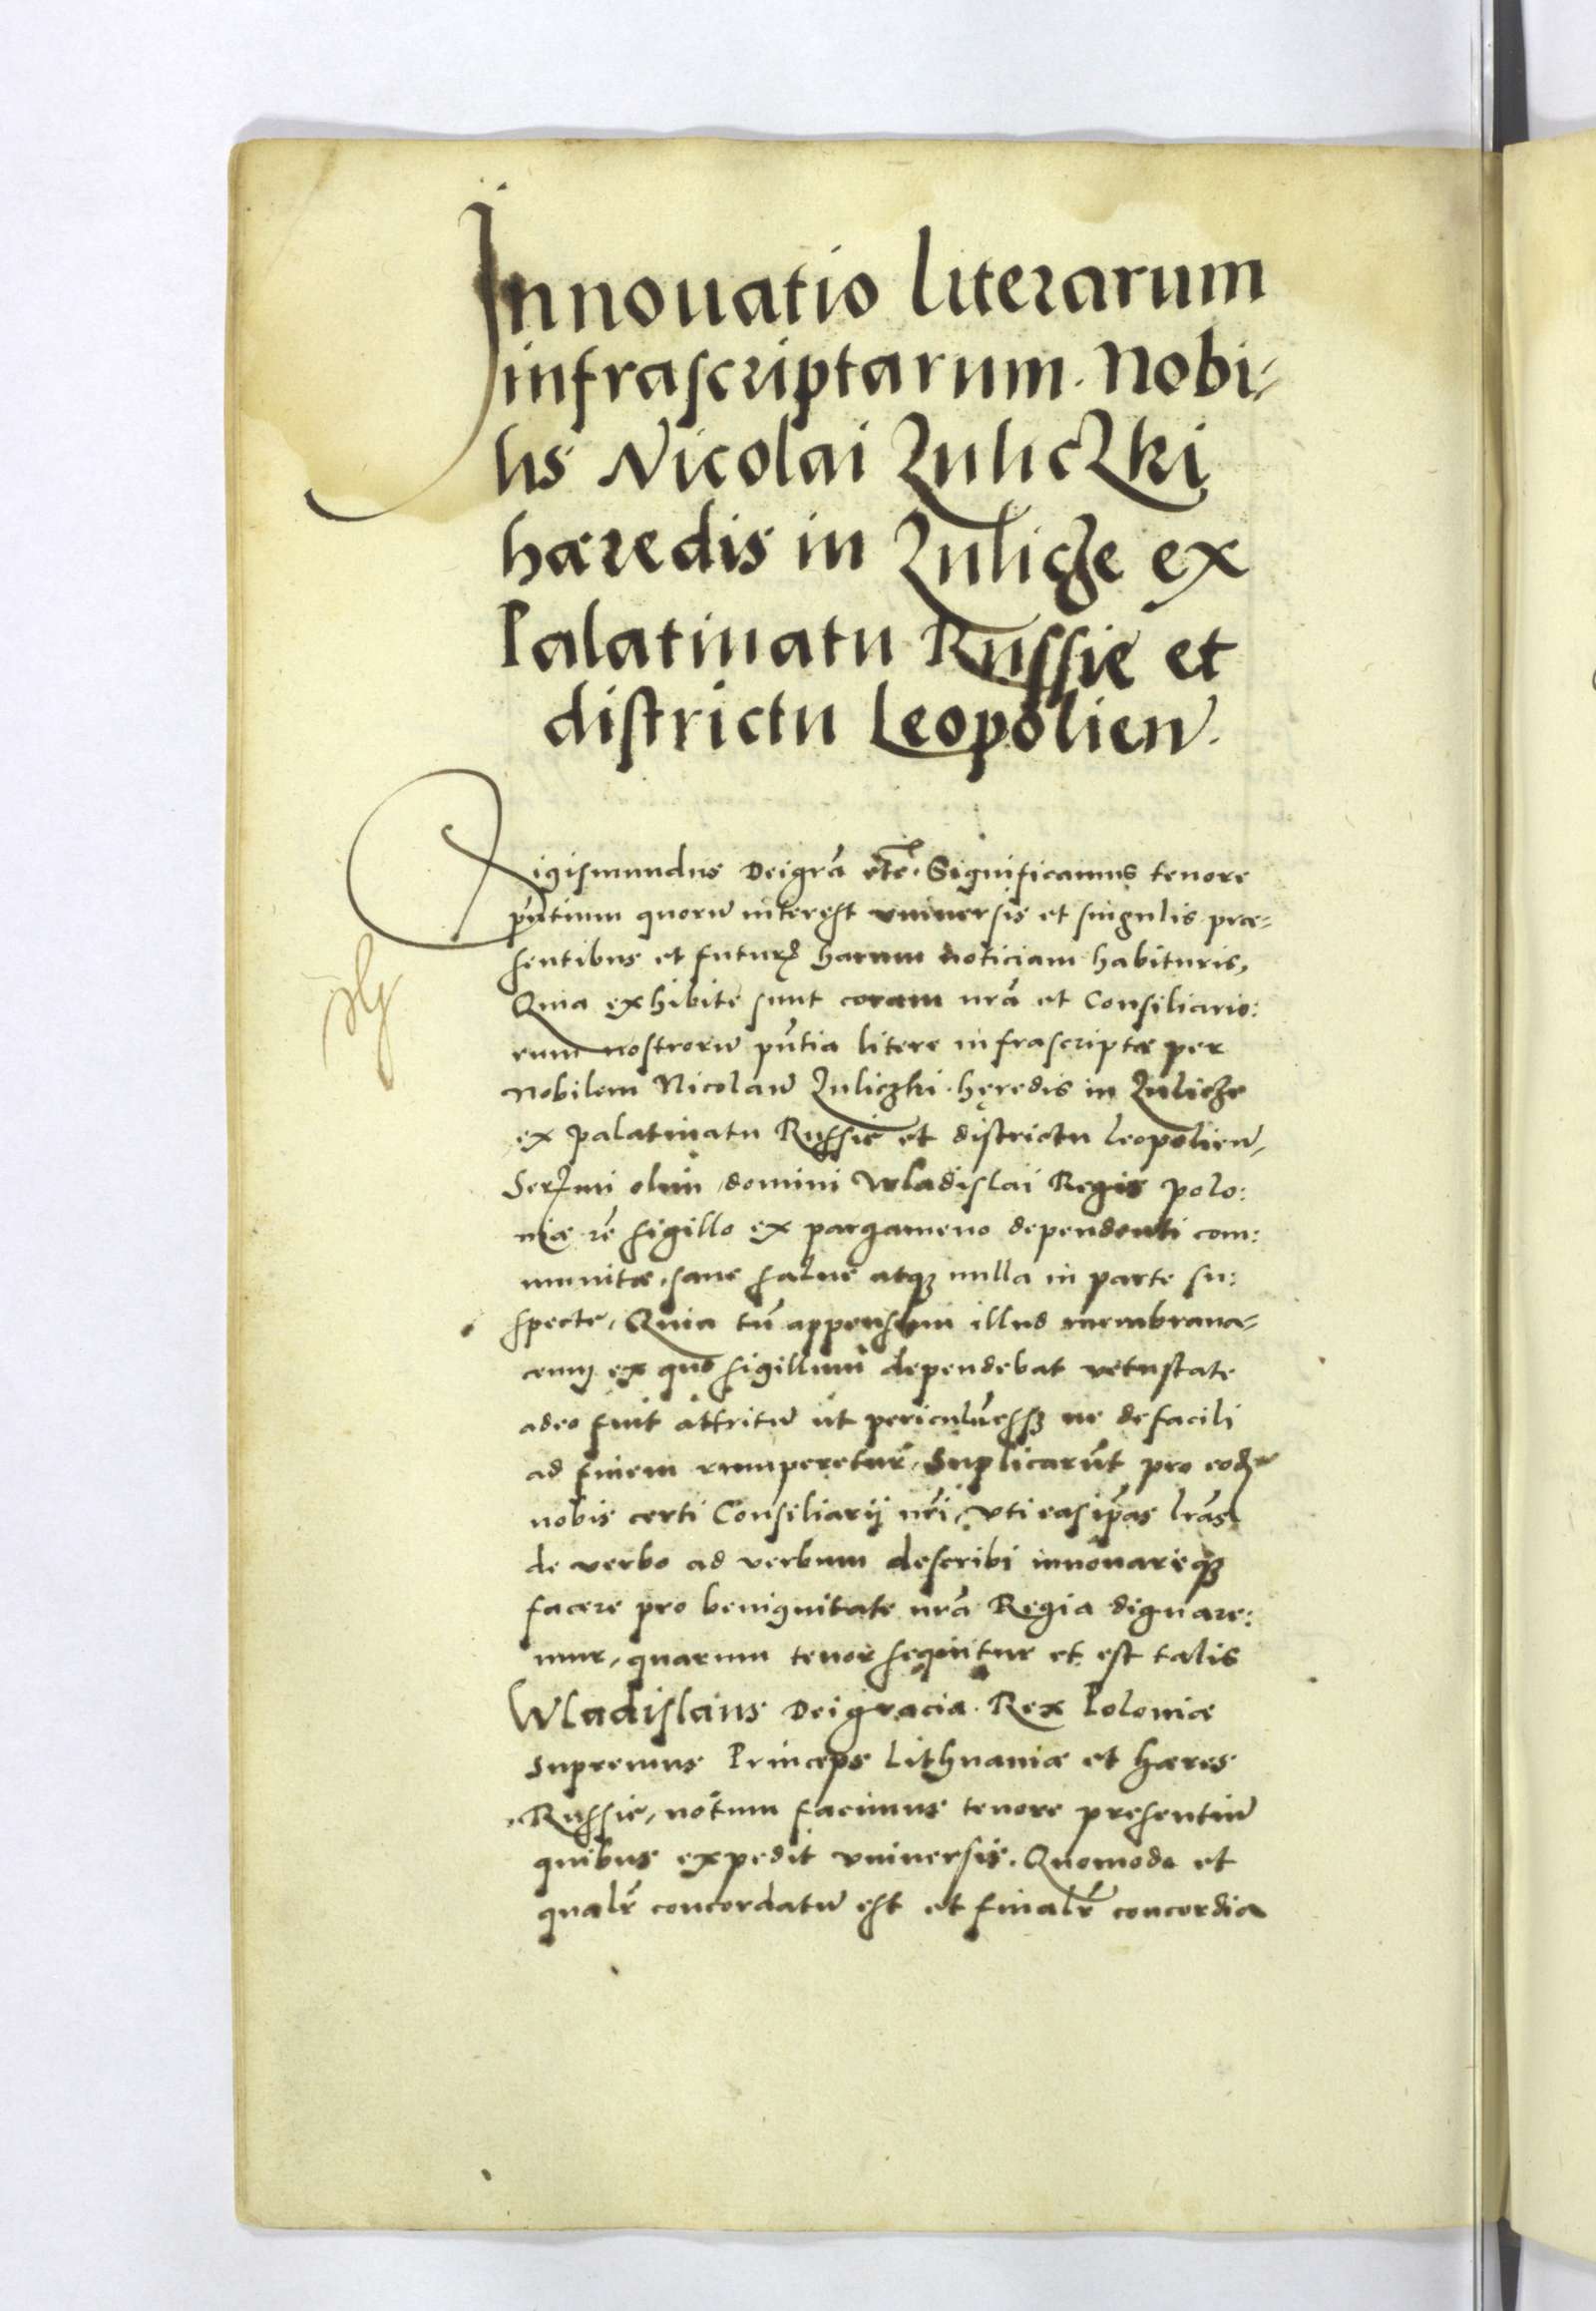 Innouatio literarum
infrascriptarum. Nobi-
lis Nicolai Zuliczki
hæredis in Zulicze ex
Palatinatu Russie et
districtu Leopolien̄.
Sigismundus Dei gr̄a etc̄. Significamus tenore
pn̄tium quorū interest vniuersis et singulis præ-
sentibus et futuris harum noticiam habituris,
Quia exhibite sunt coram nr̄a et Consiliario:
rum nostrorū pn̄tia litere infrascriptæ per
nobilem Nicolaū Zuliczki. hęredis in Zulicze
ex palatinatu Russie et districtu leopolien̄,
Serz̄mi olim domini Wladislai Regis polo:
niæ rē sigillo ex pargameno dependenti com:
munitæ, sane salue atqꝫ nulla in parte su:
specte, Quia tn̄ appensum illud membrana-
ceum ex quo sigillum dependebat vetustate
adeo fuit attritū ut periculū essꝫ ne de facili
ad finem rumperetur, Suplicarūt pro eod
nobis certi Consiliarij nr̄i, vti eas ip̄as lr̄as
de verbo ad verbum describi innouariqꝫ
facere pro benignitate nr̄a Regia dignare:
mur, quarum tenor sequitur et est talis
Wladislaus Dei gracia. Rex Poloniæ
Supremus Princeps Lithuaniæ et hæres
Russie, notum facimus tenore presentiū
quibus expedit vniuersis. Quomodo et
qualr̄ concordatū est et finalr̄ concordia